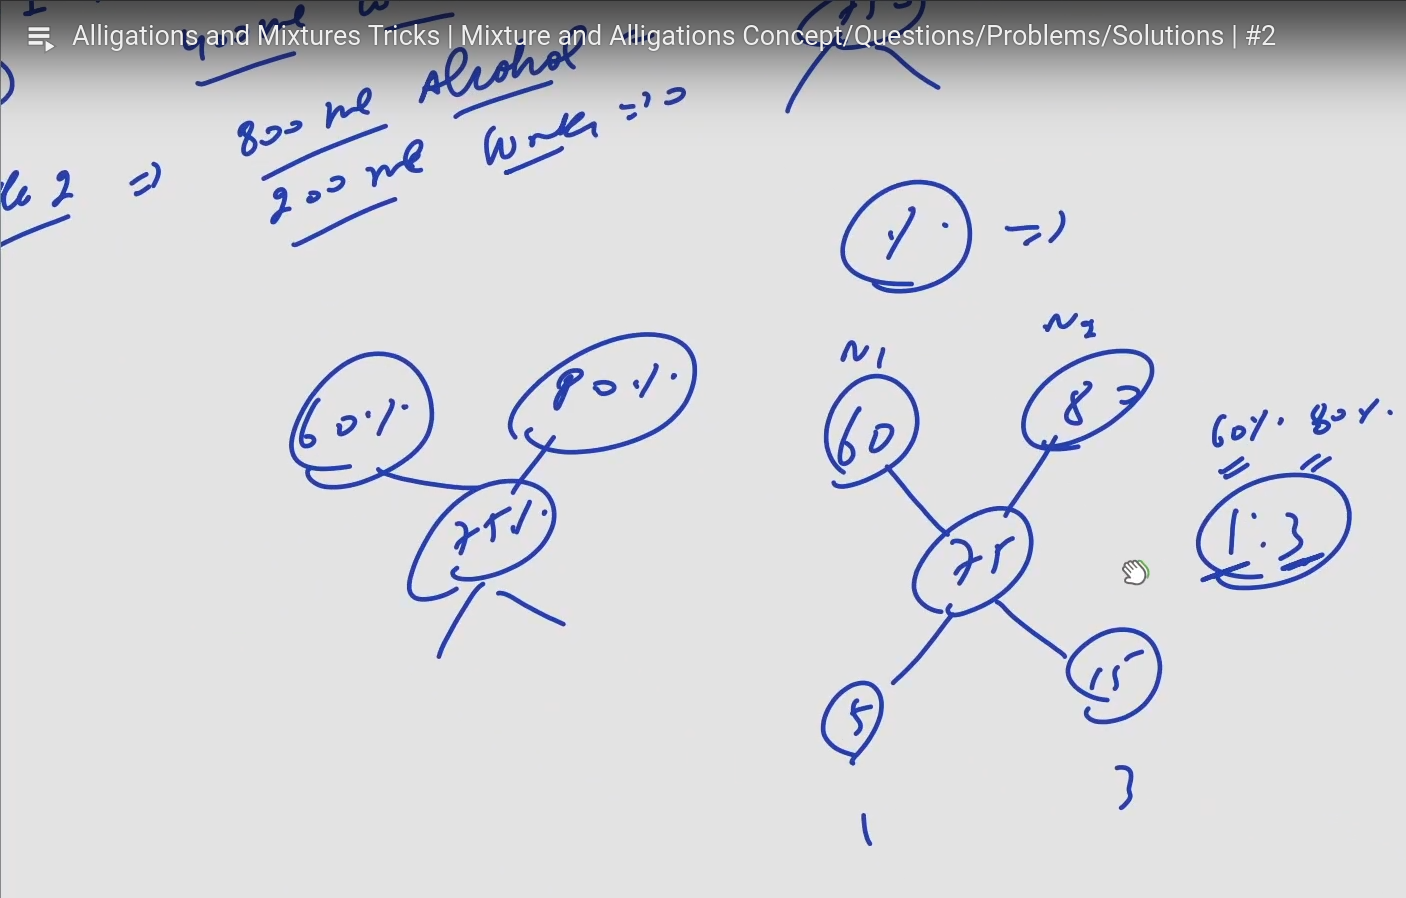 Alligations and Mixtures Tricks | Mixture and Alligations Concept/Questions/Problems/Solutions | #2
400 ml
800 ml Alcohol
2 => 200 ml Water =>
% =>
N1 N2
60% 80%
60 80
60% 80%
75%
75
1:3
5 15
1 3